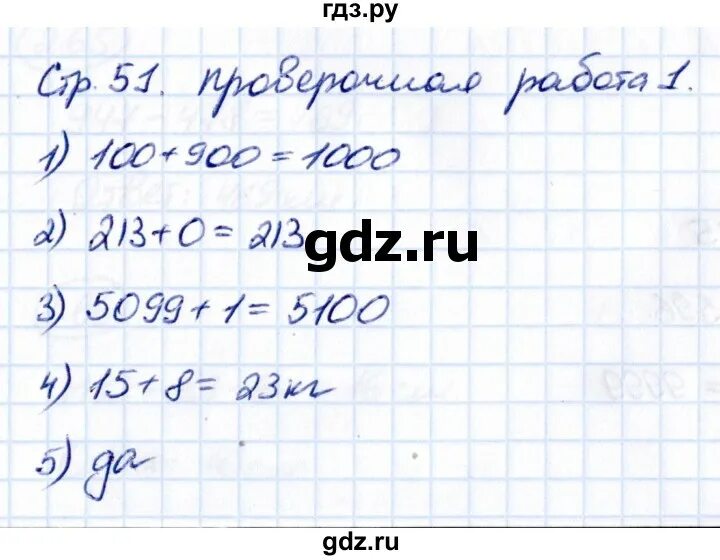 гдз.ру
Стр. 51. проверочная работа 1.
1) 100+900=1000
2) 213+0=213
gdz.ru
3) 5099+1=5100
4) 15+8=23кг
5) да
gdz.ru